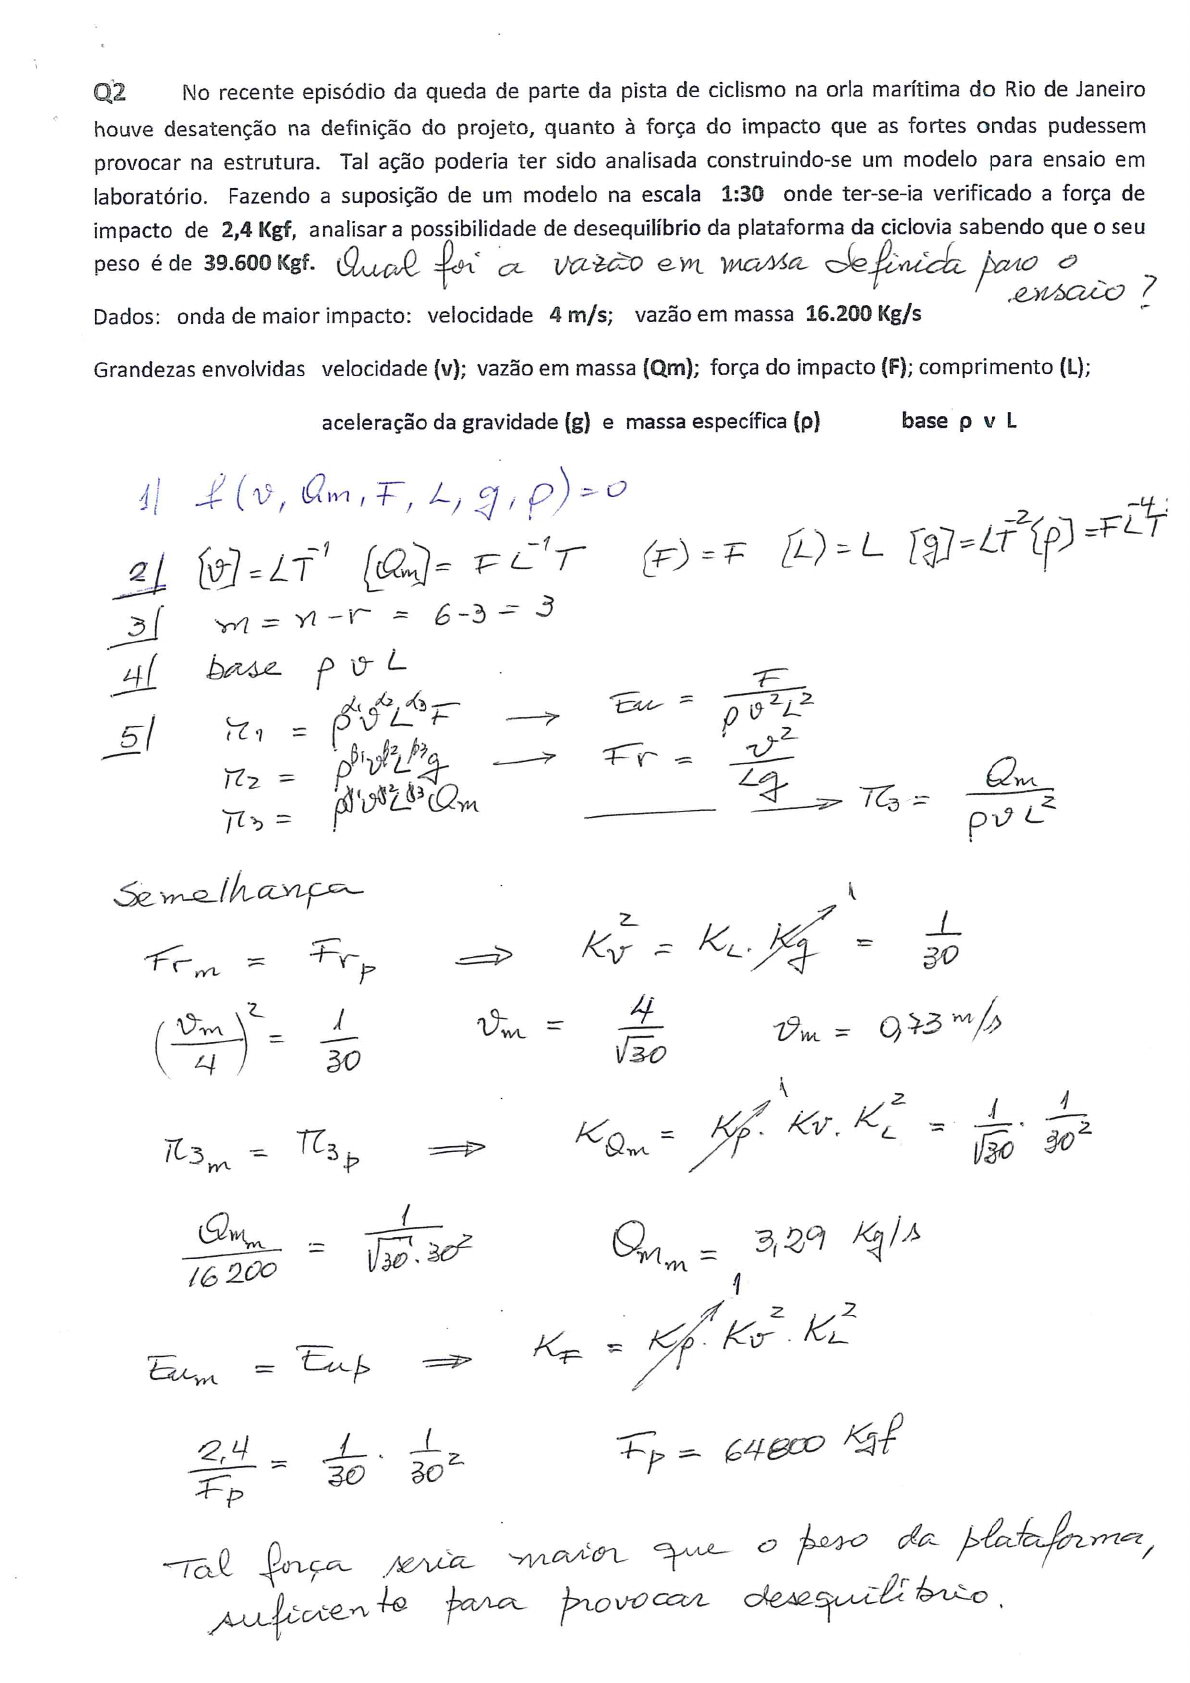 Q2 No recente episódio da queda de parte da pista de ciclismo na orla marítima do Rio de Janeiro
houve desatenção na definição do projeto, quanto à força do impacto que as fortes ondas pudessem
provocar na estrutura. Tal ação poderia ter sido analisada construindo-se um modelo para ensaio em
laboratório. Fazendo a suposição de um modelo na escala 1:30 onde ter-se-ia verificado a força de
impacto de 2,4 Kgf, analisar a possibilidade de desequilíbrio da plataforma da ciclovia sabendo que o seu
peso é de 39.600 Kgf. Qual foi a vazão em massa definida para o
ensaio?
Dados: onda de maior impacto: velocidade 4 m/s; vazão em massa 16.200 Kg/s
Grandezas envolvidas velocidade (v); vazão em massa (Qm); força do impacto (F); comprimento (L);
aceleração da gravidade (g) e massa específica (ρ) base ρ v L
1) f(v, Qm, F, L, g, ρ)=0
2) [v]=LT⁻¹ [Qm]= FL⁻¹T (F)=F [L)=L [g]=LT⁻² [ρ]=FL⁻⁴T
3) m = n-r = 6-3 = 3
4) base ρ v L
5) π₁ = ρ^α1 v^α2 L^α3 F → Eu = F / ρv²L²
π₂ = ρ^β1 v^β2 L^β3 g → Fr = v² / Lg
π₃ = ρ^γ1 v^γ2 L^γ3 Qm → π₃ = Qm / ρvL²
Semelhança
Frm = Frp ⇒ Kv² = KL. Kg 1 = 1/30
(vm/4)² = 1/30 vm = 4/√30 vm = 0,73 m/s
π3m = π3p ⇒ KQm = Kρ. 1 Kv. KL² = 1/√30 . 1/30²
Qmm/16200 = 1/√30.30² Qmm = 3,29 Kg/s
Eum = Eup ⇒ KF = Kρ. 1 Kv². KL²
2,4/Fp = 1/30 . 1/30² Fp = 64800 Kgf
Tal força seria maior que o peso da plataforma,
suficiente para provocar desequilíbrio.